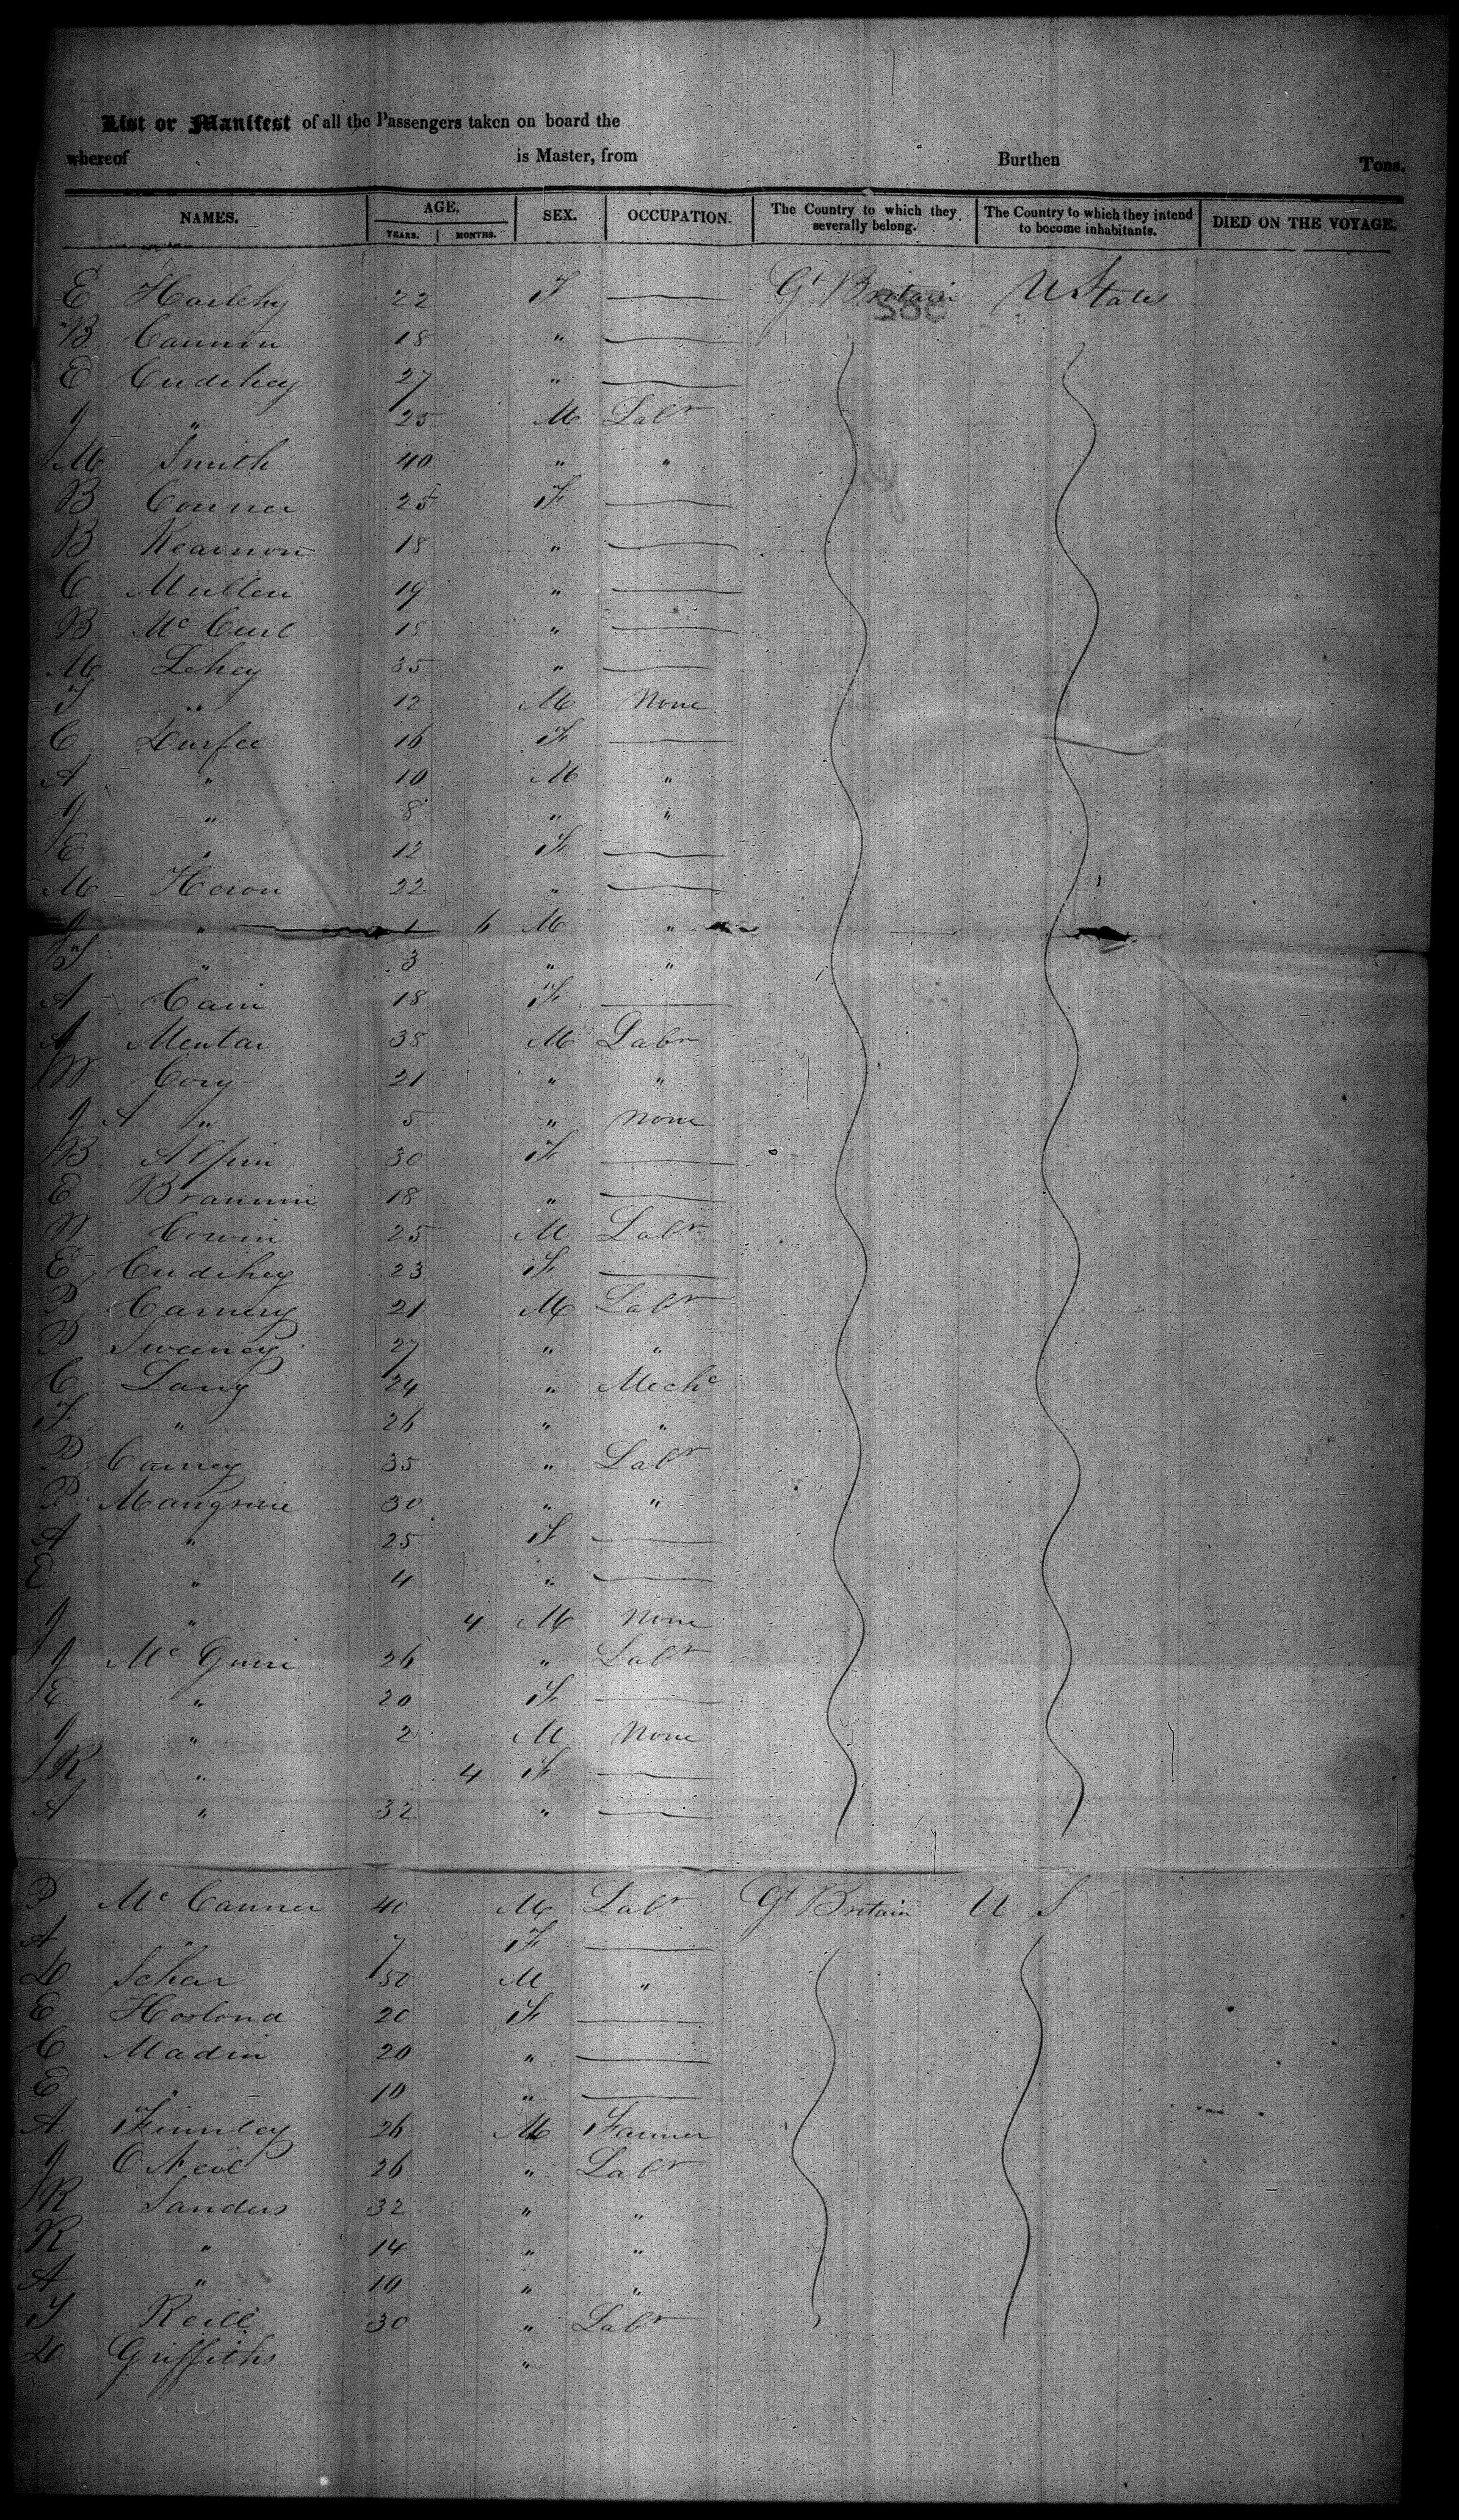 List or Manifest of all the Passengers taken on board the
whereof is Master, from Burthen Tons.
NAMES. AGE. YEARS. MONTHS. SEX. OCCUPATION. The Country to which they severally belong. The Country to which they intend to become inhabitants. DIED ON THE VOYAGE.
E 22 F — Gt Britain U States
B Cannon 18 " —
E Cudihey 27 " —
J " 25 M Labr
M Smith 40 " "
B Conner 25 F —
B Kearnon 18 " —
C Mullen 19 " —
B Mc Curl 18 " —
M Lehey 35 " —
T " 12 M None
C Durfee 16 F —
A " 10 M "
J " 8 " "
E " 12 F —
M Heron 22 " —
J " 1 6 M "
T " 3 " "
A Cain 18 F —
A Mentar 38 M Labr
W Cory 21 " "
J A " 5 " None
B Alpin 30 F —
E Brannin 18 " —
W Corwin 25 M Labr
E Cudihey 23 F —
P Carnery 21 M Labr
P Sweeney 27 " "
C Lang 24 " Mechc
F " 26 " "
P Carney 35 " Labr
P Mangrave 30 " "
A " 25 F —
E " 4 " —
J " 4 M None
J Mc Guire 26 " Labr
E " 20 F —
J " 2 M None
R " 4 F —
A " 32 " —
P Mc Canner 40 M Labr Gt Britain U S
A " 7 F —
D Schar 50 M "
E Hosland 20 F —
C Madin 20 " —
E " 10 " —
A Finnley 26 M Farmer
J O Neil 26 " Labr
R Sanders 32 " "
R " 14 " "
A " 10 " "
T Reill 30 " Labr
D Griffiths "